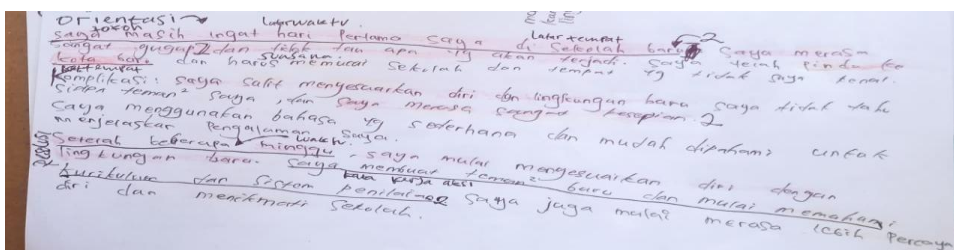 orientasi
tokoh
Latar waktu
saya masih ingat hari Pertama saya di Sekolah baru 2 saya merasa
Latar tempat
sangat gugup dan tidak tau apa yg akan terjadi. saya telah Pindah ke
suasana.
kota baru dan harus memulai Sekolah dan tempat yg tidak saya kenal.
Latar tempat
Komplikasi: saya sulit menyesuaikan diri dgn lingkungan baru saya tidak tahu
siapa teman² saya, dan saya merasa sangat kesepian. 2
saya menggunakan bahasa yg sederhana dan mudah dipahami untuk
menjelaskan Pengalaman saya.
waktu.
Setelah beberapa minggu, saya mulai menyesuaikan diri dengan
lingkungan baru. saya membuat teman² baru dan mulai memahami
kata kerja aksi
kurikulum dan sistem penilaian saya juga mulai merasa lebih Percaya
diri dan menikmati Sekolah.